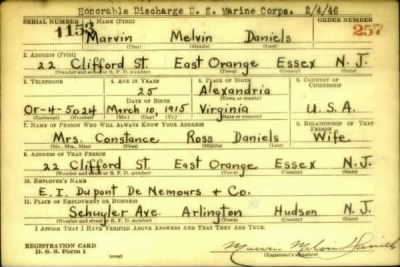 Honorable Discharge U. S. Marine Corps. 2/4/46
SERIAL NUMBER 1. NAME (Print) ORDER NUMBER
1153 Marvin Melvin Daniels 257
(First) (Middle) (Last)
2. ADDRESS (Print)
22 Clifford St. East Orange Essex N. J.
(Number and street or R. F. D. number) (Town) (County) (State)
3. TELEPHONE 4. AGE IN YEARS 5. PLACE OF BIRTH 6. COUNTRY OF CITIZENSHIP
25 Alexandria
DATE OF BIRTH (Town or county)
Or-4-5024 March 10, 1915 Virginia U.S.A.
(Mo.) (Day) (Yr.) (State or country)
7. NAME OF PERSON WHO WILL ALWAYS KNOW YOUR ADDRESS 8. RELATIONSHIP OF THAT PERSON
Mrs. Constance Ross Daniels Wife
(Mr., Mrs., Miss) (First) (Middle) (Last)
9. ADDRESS OF THAT PERSON
22 Clifford St. East Orange Essex N. J.
(Number and street or R. F. D. number) (Town) (County) (State)
10. EMPLOYER'S NAME
E. I. Dupont De Nemours + Co.
11. PLACE OF EMPLOYMENT OR BUSINESS
Schuyler Ave. Arlington Hudson N. J.
(Number and street or R. F. D. number) (Town) (County) (State)
I AFFIRM THAT I HAVE VERIFIED ABOVE ANSWERS AND THAT THEY ARE TRUE.
REGISTRATION CARD
D. S. S. Form 1 Marvin Melvin Daniels
(Registrant's signature)